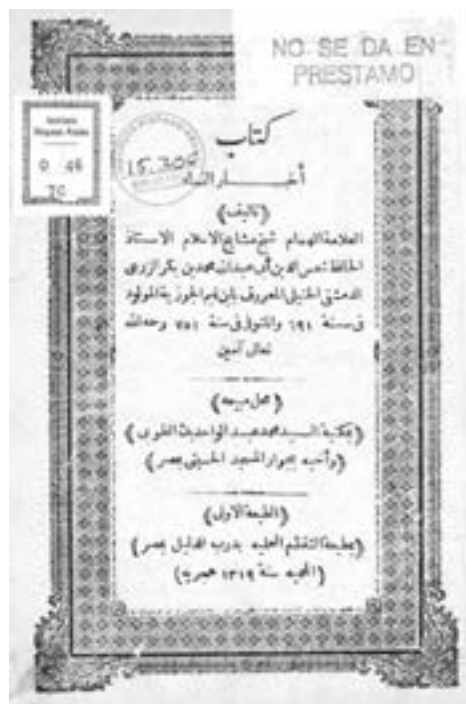 NO SE DA EN
PRESTAMO
15.309
كتاب
أخبار النساء
(تأليف)
العلامة الهمام شيخ مشايخ الاسلام الاستاذ
الحافظ شمس الدين أبى عبدالله محمد بن بكر الزرعى
الدمشقى الحنبلى المعروف بابن قيم الجوزية المولود
فى سنة ٦٩١ والمتوفى فى سنة ٧٥١ رحمه الله
تعالى آمين
(محل مبيعه)
(بمكتبة السيد محمد عبد الواحد بك الطوبى)
(وأخيه بجوار المسجد الحسينى بمصر)
(الطبعة الاولى)
(بمطبعة التقدم العلميه بدرب الدليل بمصر)
(المحميه سنة ١٣١٩ هجريه)